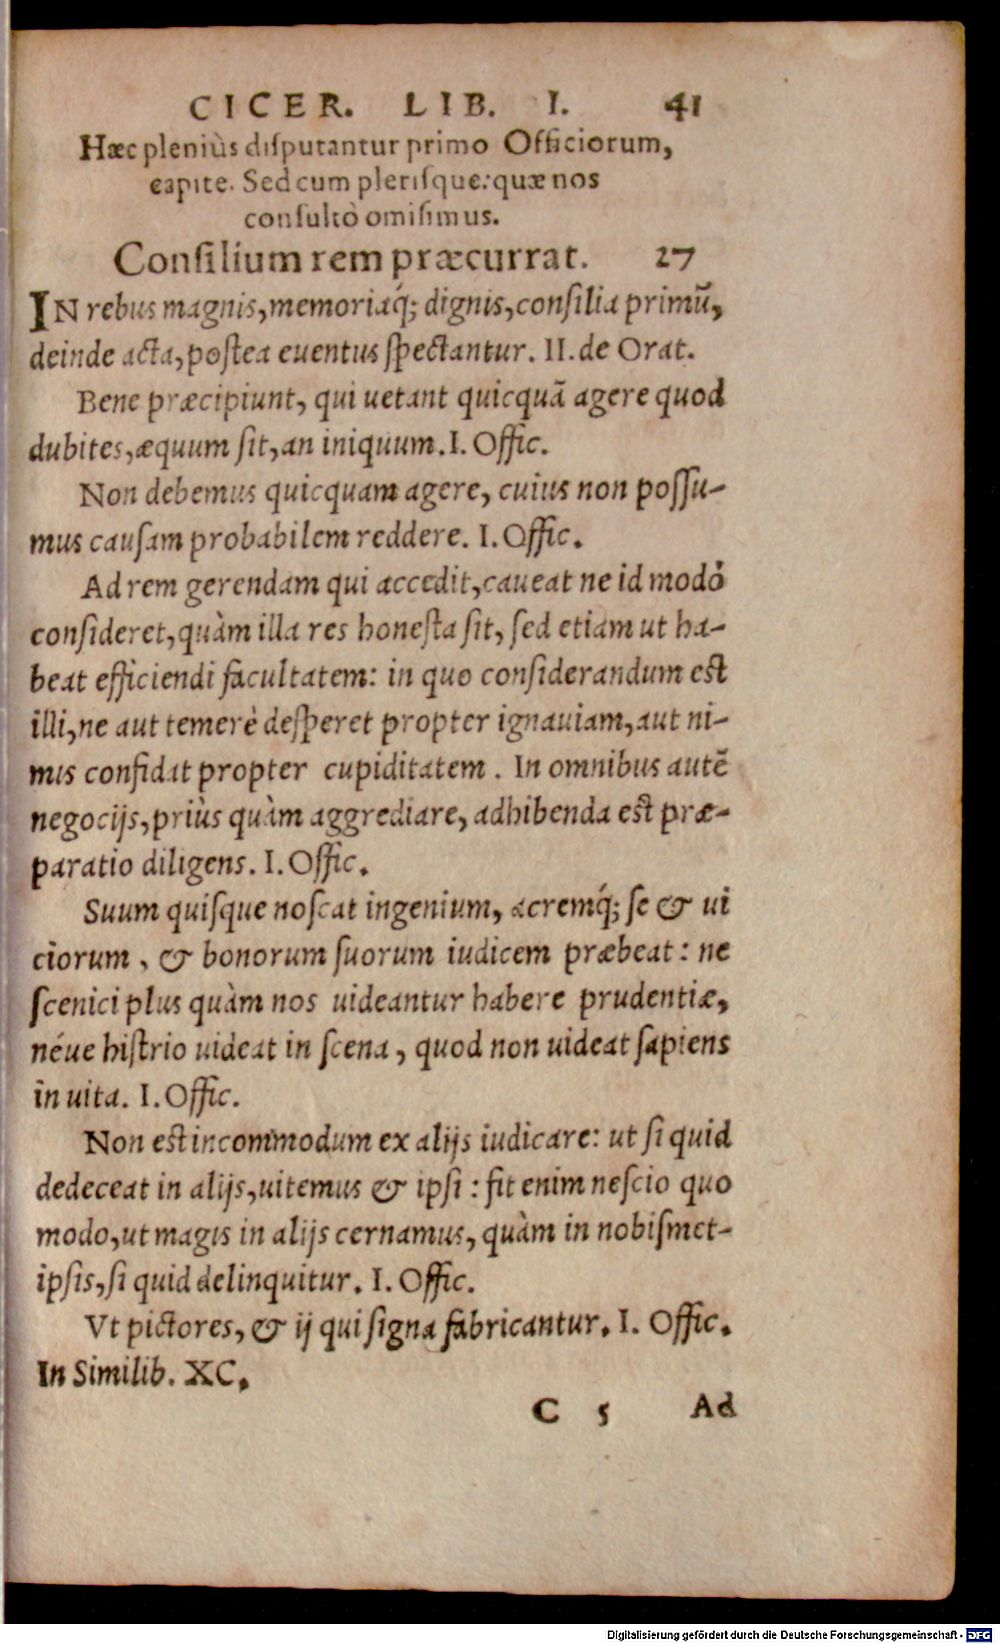 CICER. LIB. I. 41
Hæc pleniùs disputantur primo Officiorum,
capite. Sed cum plerisque: quæ nos
consultò omisimus.
Consilium rem præcurrat. 27
IN rebus magnis, memoriaq́; dignis, consilia primũ,
deinde acta, postea euentus spectantur. II. de Orat.
Bene præcipiunt, qui uetant quicquã agere quod
dubites, æquum sit, an iniquum. I. Offic.
Non debemus quicquam agere, cuius non possu-
mus causam probabilem reddere. I. Offic.
Ad rem gerendam qui accedit, caueat ne id modò
consideret, quàm illa res honesta sit, sed etiam ut ha-
beat efficiendi facultatem: in quo considerandum est
illi, ne aut temerè desperet propter ignauiam, aut ni-
mis confidat propter cupiditatem. In omnibus autẽ
negocijs, priùs quàm aggrediare, adhibenda est præ-
paratio diligens. I. Offic.
Suum quisque noscat ingenium, acremq́; se & ui
ciorum, & bonorum suorum iudicem præbeat: ne
scenici plus quàm nos uideantur habere prudentiæ,
néue histrio uideat in scena, quod non uideat sapiens
in uita. I. Offic.
Non est incommodum ex alijs iudicare: ut si quid
dedeceat in alijs, uitemus & ipsi: fit enim nescio quo
modo, ut magis in alijs cernamus, quàm in nobismet-
ipsis, si quid delinquitur. I. Offic.
Vt pictores, & ij qui signa fabricantur. I. Offic.
In Similib. XC.
C 5 Ad
Digitalisierung gefördert durch die Deutsche Forschungsgemeinschaft - DFG